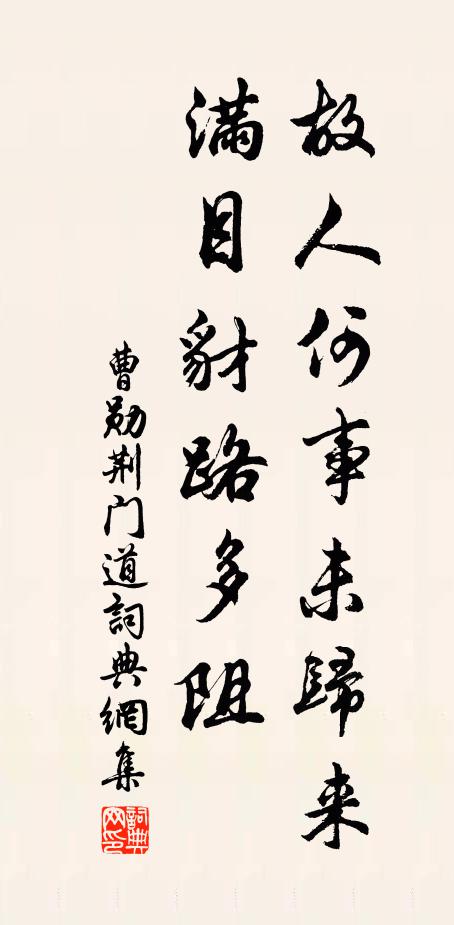 故人何事未歸来
满目豺路多阻
曹勋荆门道詞典網集
詞典网印